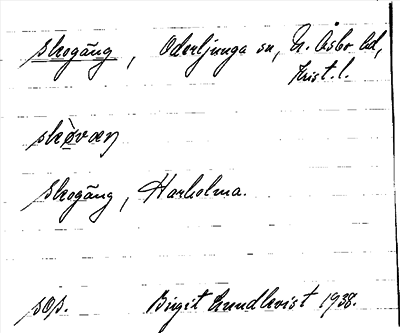 skogäng, Oderljunga sn, N. Åsbo hd,
Krist. l.
skogäng, Harholma.
sos. Birgit Lundkvist 1938.